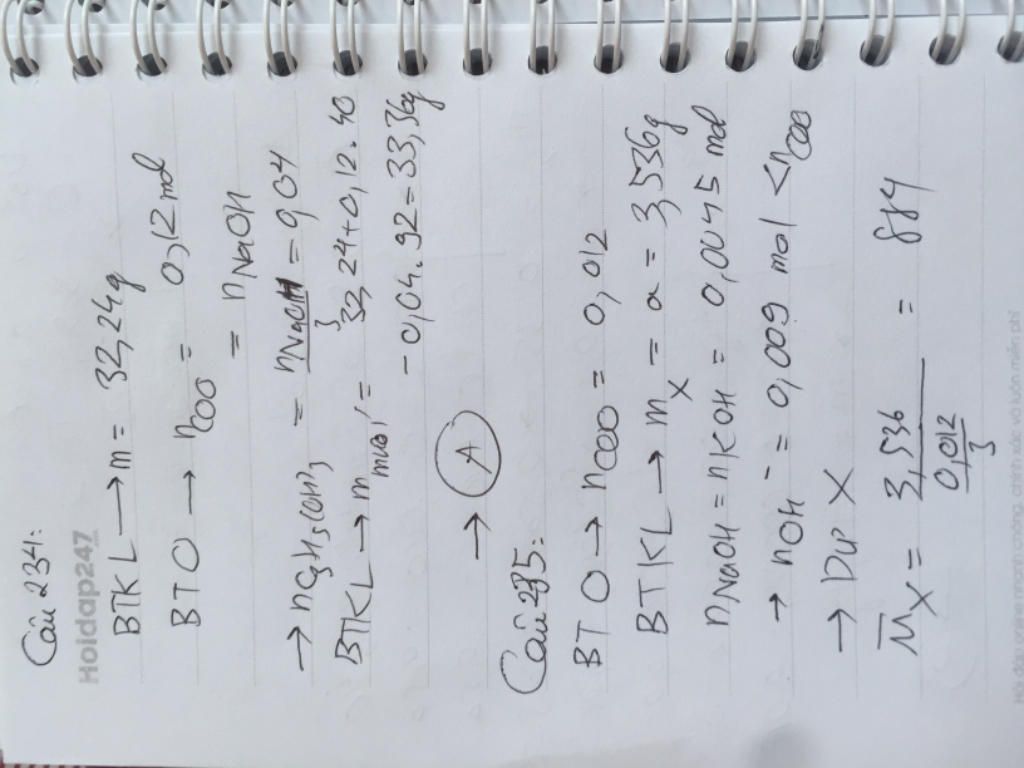 Câu 234:
Hoidap247
BTKL → m = 33,24g
BTO → nCOO = 0,12 mol
= nNaOH
→ nC3H5(OH)3 = nNaOH/3 = 0,04
BTKL → m muối = 33,24 + 0,12.40
- 0,04.92 = 33,36g
→ A
Câu 235:
BTO → nCOO = 0,012
BTKL → mX = a = 3,536g
nNaOH = nKOH = 0,0045 mol
→ nOH- = 0,009 mol < nCOO
→ Dư X
M̅X = 3,536/(0,012/3) = 884
Hỏi đáp online nhanh chóng, chính xác và luôn miễn phí